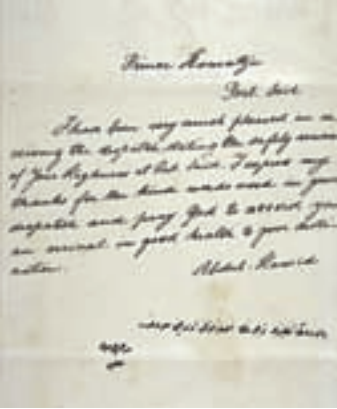 Prince Komatzu
Port Said
I have been very much pleased in re
ceiving the despatch stating the safety arrival
of Your Highness at Port Said. I express my
thanks for the kind words used in your
despatch and pray God to accord you
an arrival in good health to your desti
nation.
Abdul-Hamid